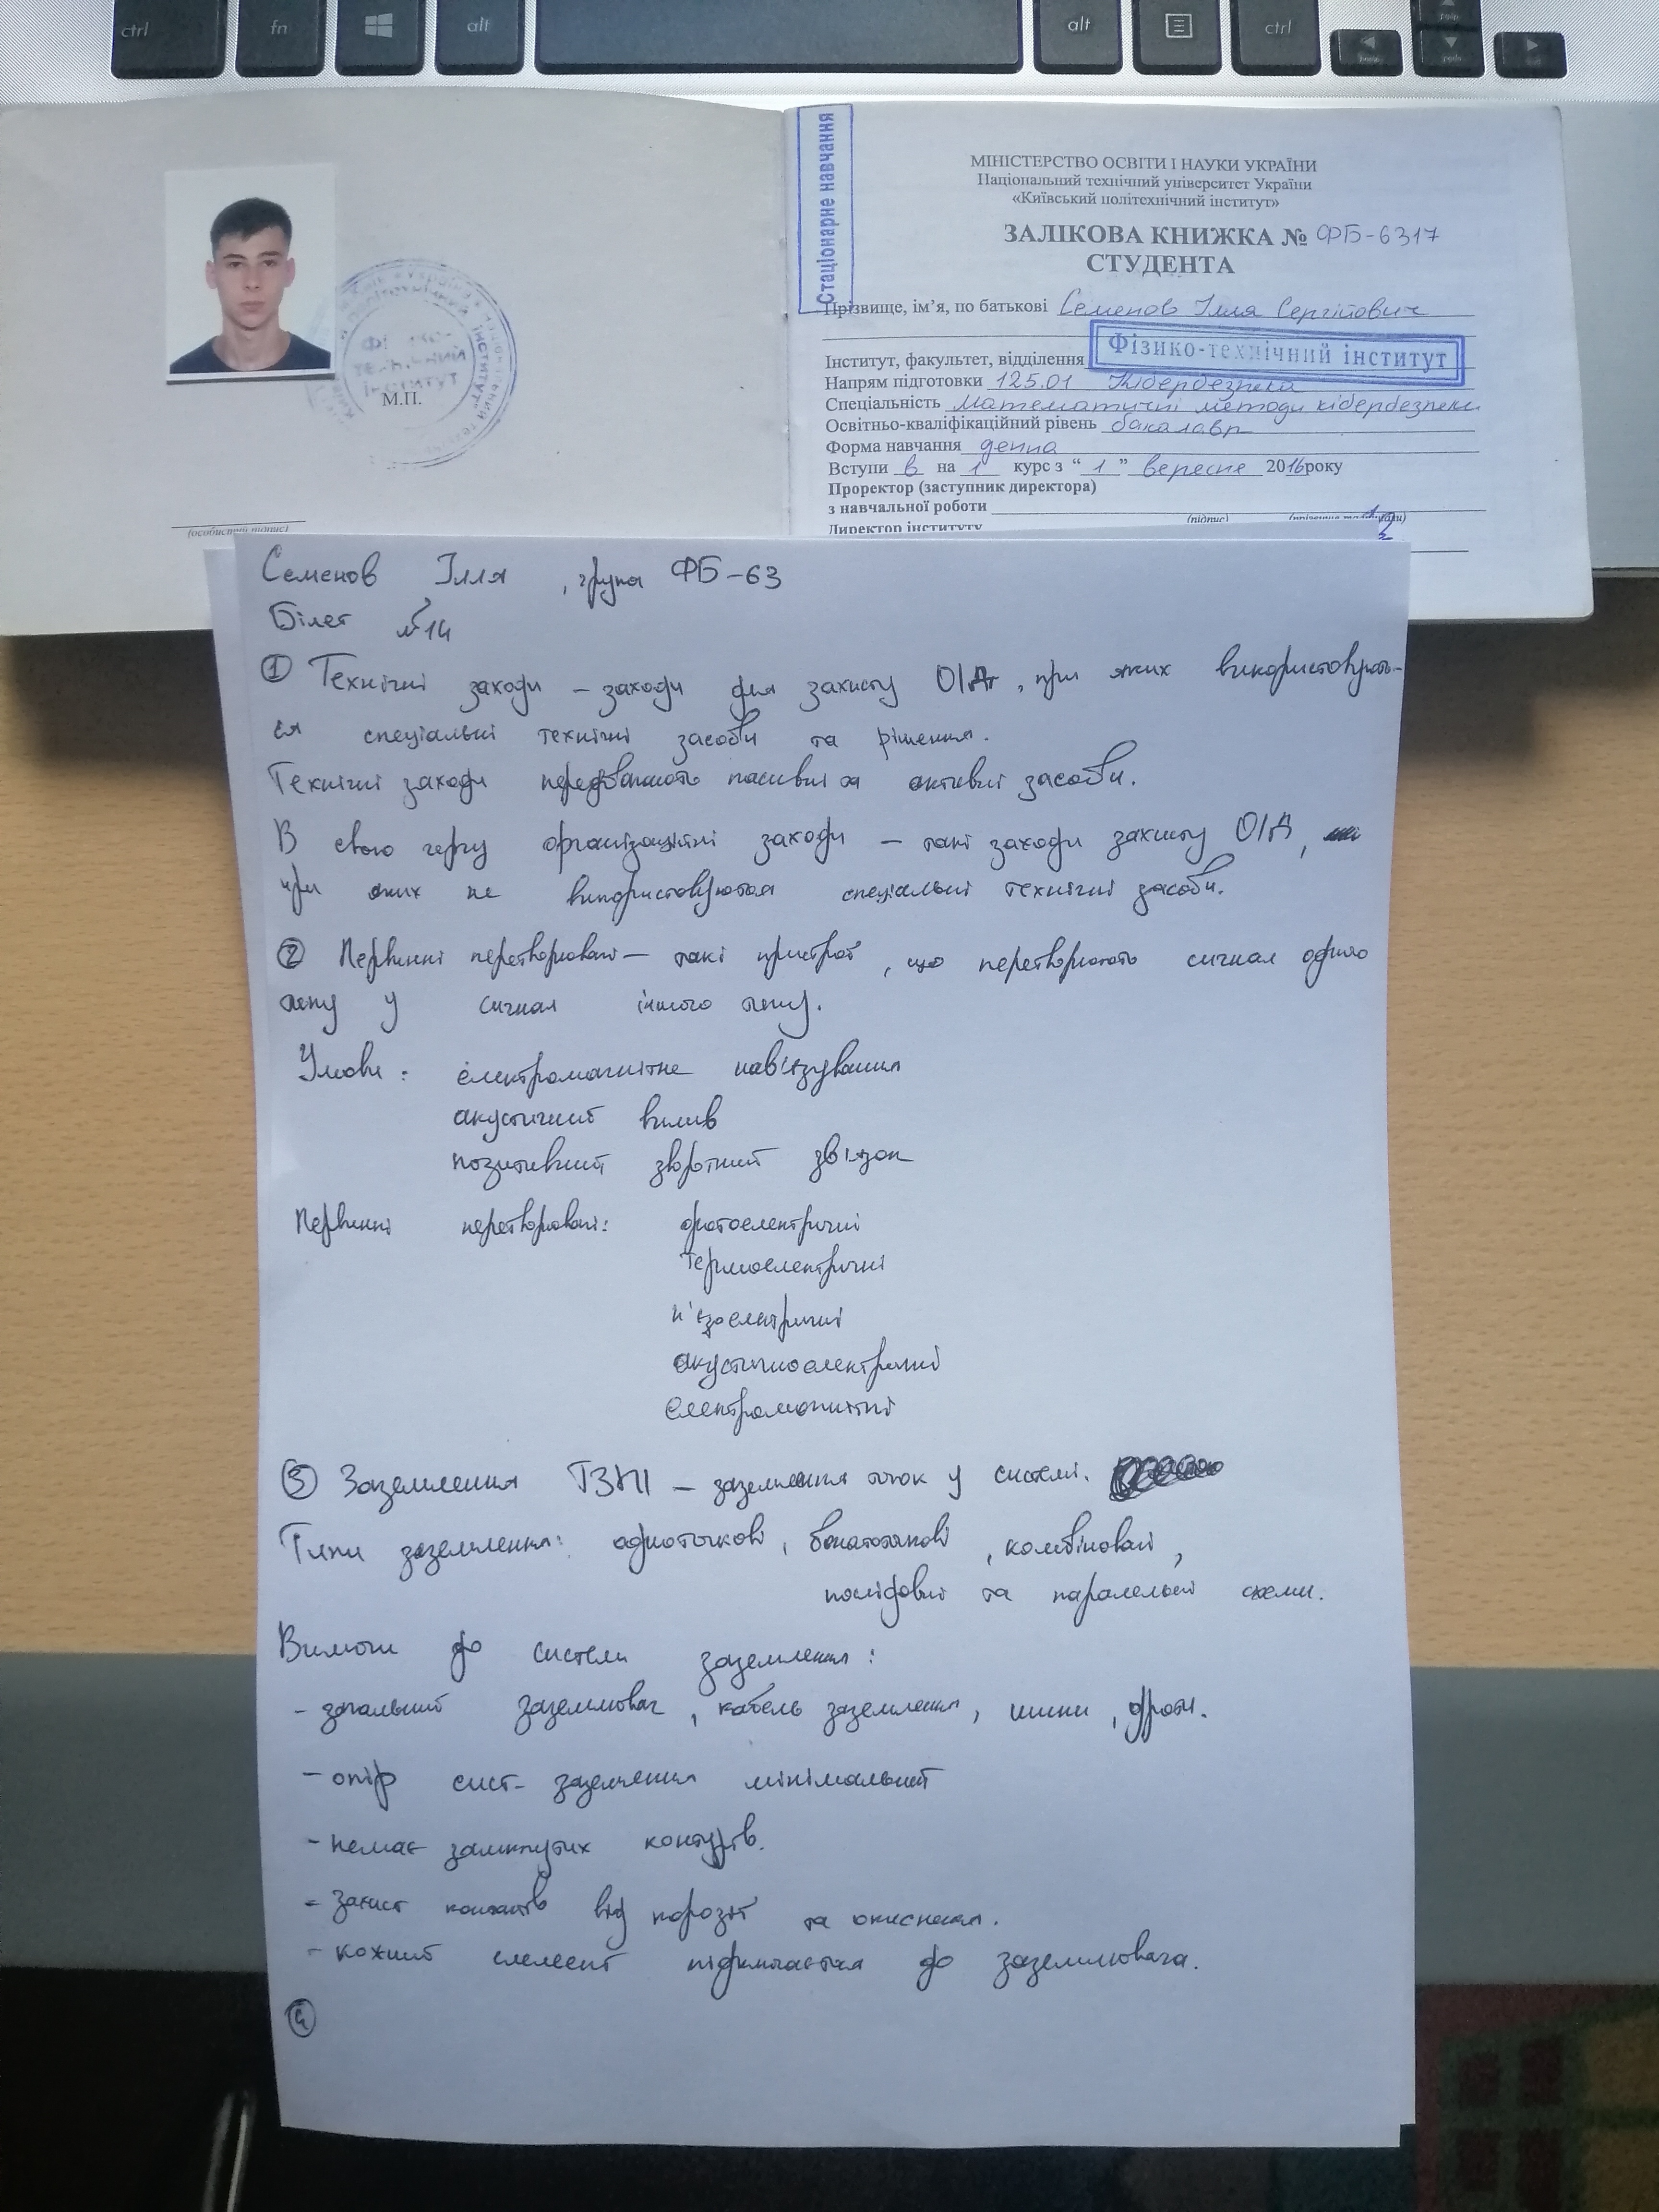 ctrl fn alt alt ctrl
Стаціонарне навчання
МІНІСТЕРСТВО ОСВІТИ І НАУКИ УКРАЇНИ
Національний технічний університет України
«Київський політехнічний інститут»
ЗАЛІКОВА КНИЖКА № ФБ-6317
СТУДЕНТА
Прізвище, ім’я, по батькові Семенов Ілля Сергійович
Інститут, факультет, відділення Фізико-технічний інститут
Напрям підготовки 125.01 Кібербезпека
Спеціальність Математичні методи кібербезпеки
Освітньо-кваліфікаційний рівень бакалавр
Форма навчання денна
Вступи в на 1 курс з “ 1 ” вересня 2016 року
Проректор (заступник директора)
з навчальної роботи
(підпис)
Директор інституту
М.П.
(особистий підпис)
Семенов Ілля , група ФБ-63
Білет №14
① Технічні заходи – заходи для захисту ОІД, при яких використовують-
ся спеціальні технічні засоби та рішення.
Технічні заходи передбачають пасивні та активні засоби.
В свою чергу організаційні заходи – такі заходи захисту ОІД,
при яких не використовуються спеціальні технічні засоби.
② Первинні перетворювачі – такі пристрої, що перетворюють сигнал одного
типу у сигнал іншого типу.
Умови: електромагнітне нав'язування
акустичний вплив
позитивний зворотний зв'язок
Первинні перетворювачі: фотоелектричні
термоелектричні
п'єзоелектричні
акустичноелектричні
електромагнітні
③ Заземлення ТЗПІ – заземлення точок у системі.
Типи заземлення: одноточкові, багатоточкові, комбіновані,
послідовні та паралельні схеми.
Вимоги до системи заземлення:
- загальний заземлювач, кабель заземлення, шини, дроти.
- опір сист. заземлення мінімальний
- немає замкнутих контурів.
- захист контактів від корозії та окиснення.
- кожний елемент підключається до заземлювача.
④